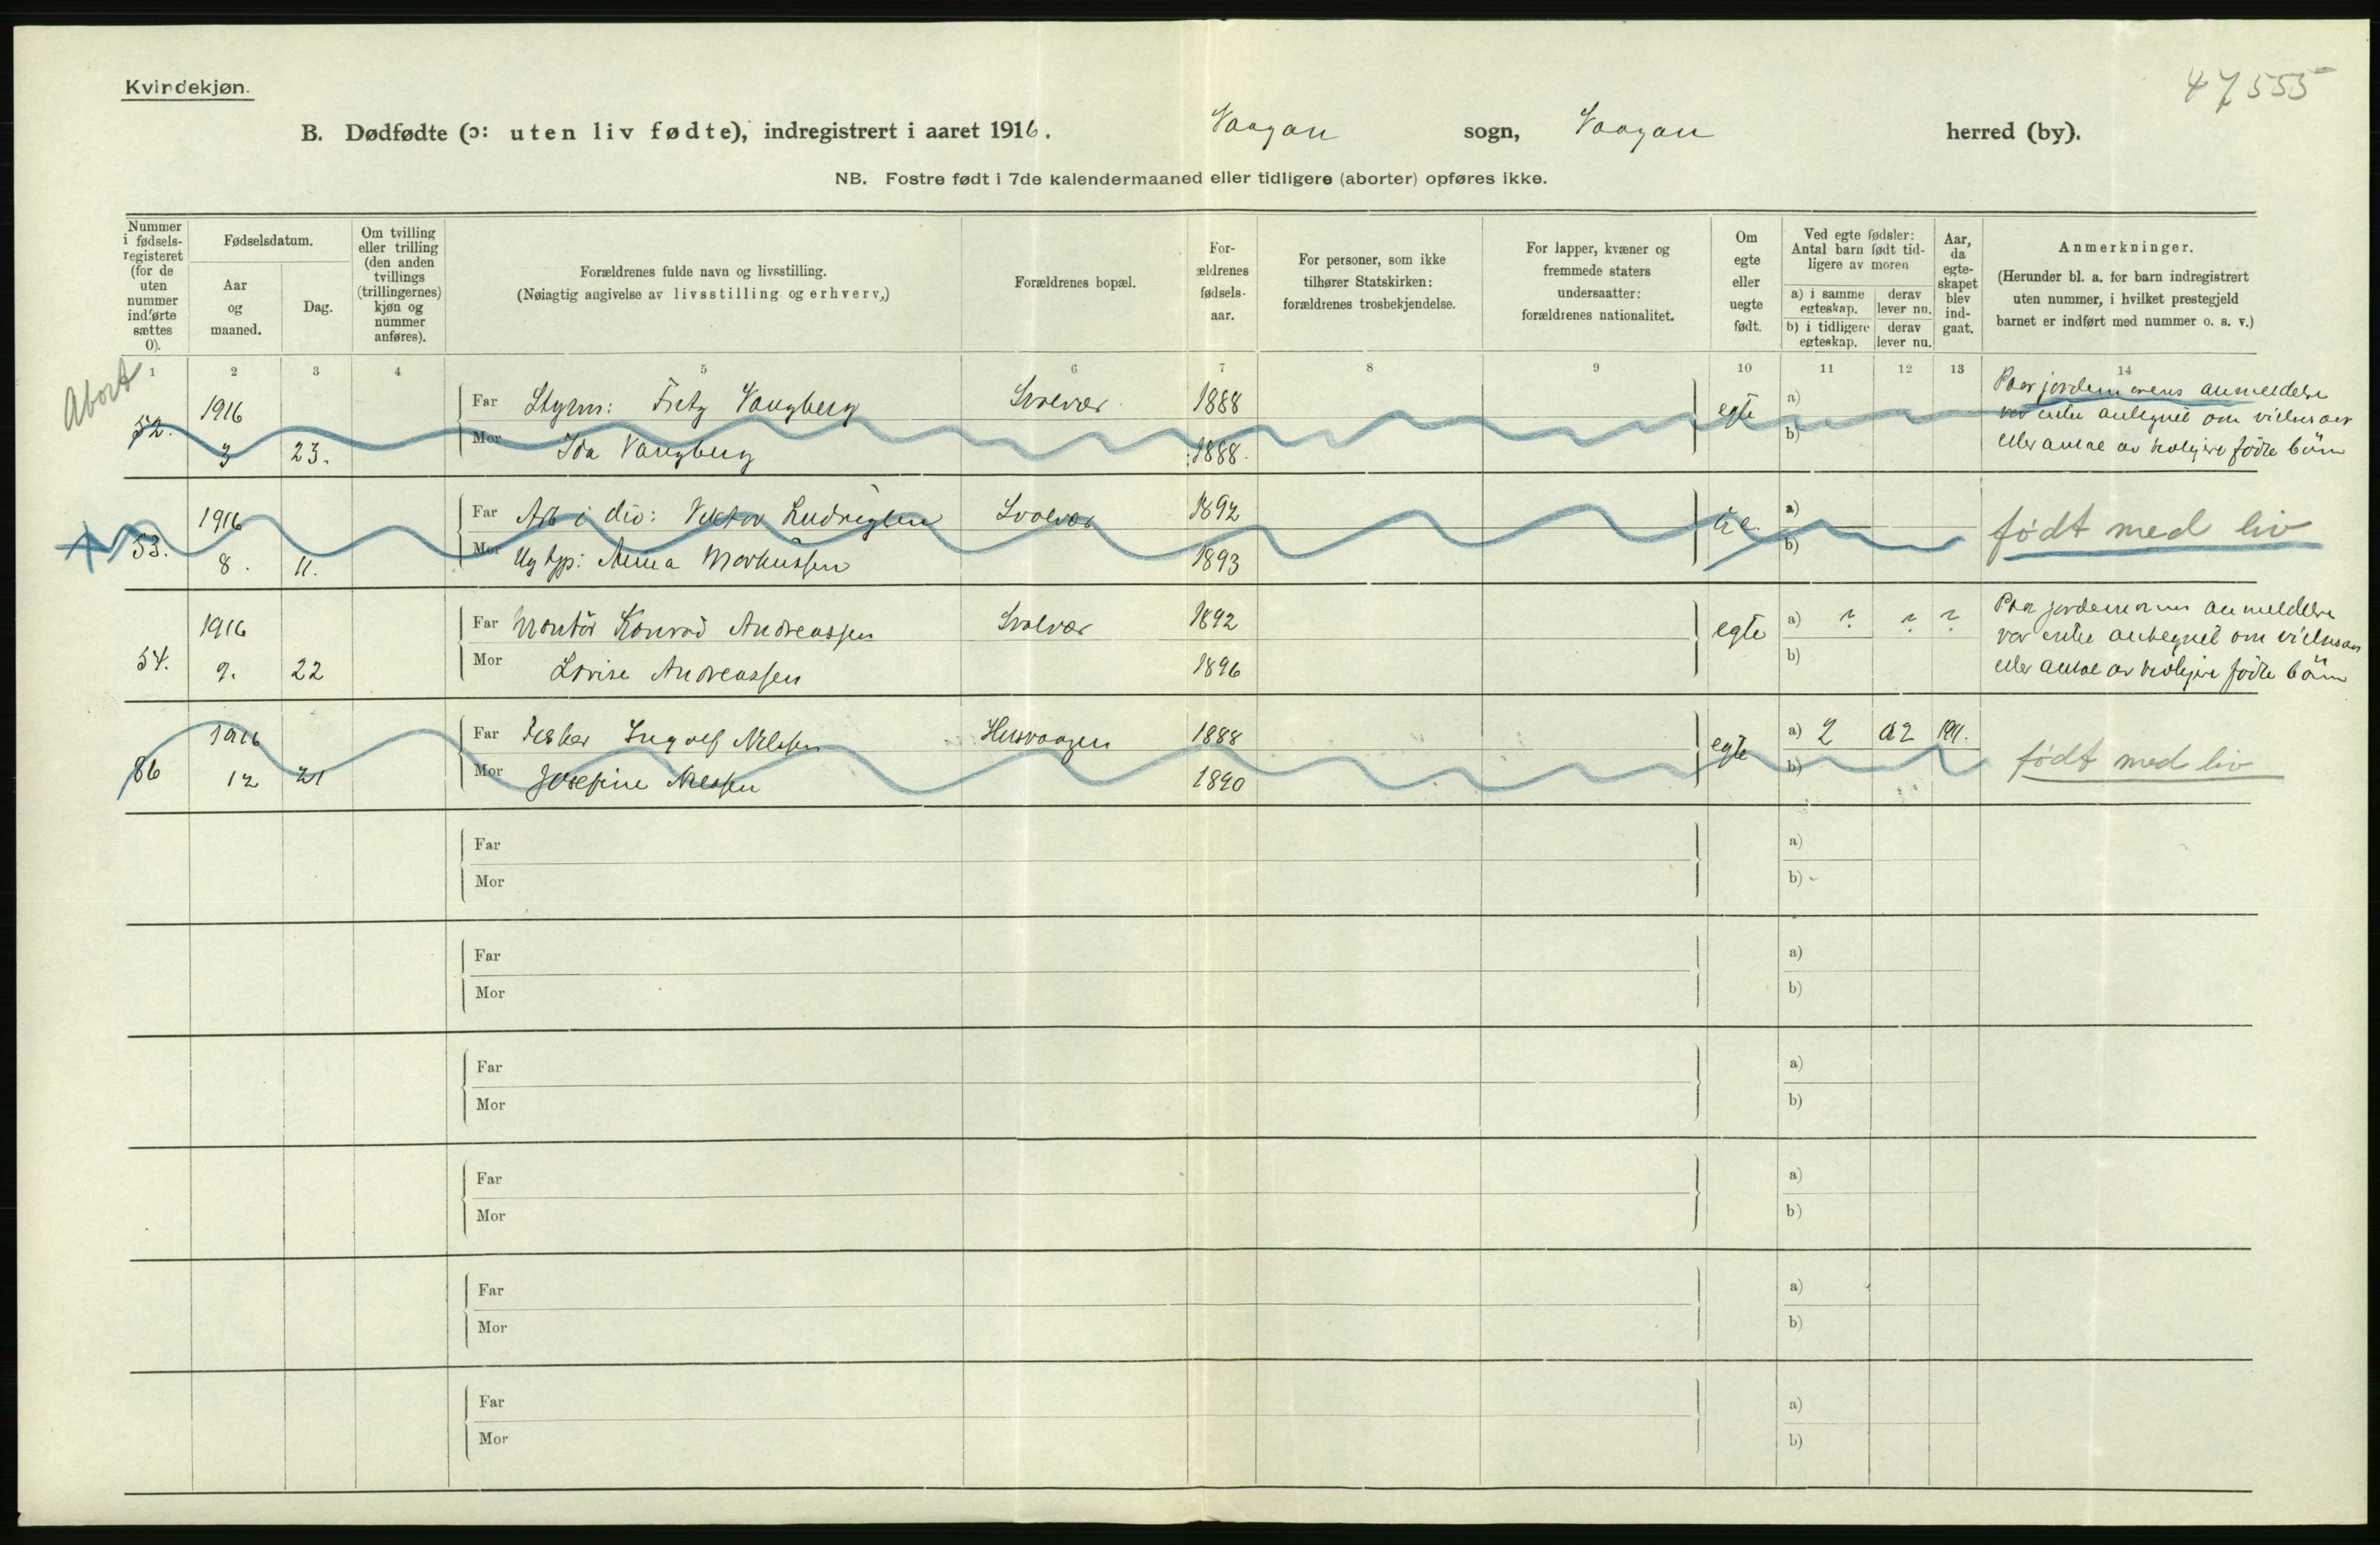 Kvindekjøn.
47555
B. Dødfødte (ɔ: uten liv fødte), indregistrert i aaret 1916. Vaagan sogn, Vaagan herred (by).
NB. Fostre født i 7de kalendermaaned eller tidligere (aborter) opføres ikke.
Nummer i fødsels-registeret (for de uten nummer indførte sættes 0).
Fødselsdatum.
Aar og maaned.
Dag.
Om tvilling eller trilling (den anden tvillings (trillingernes) kjøn og nummer anføres).
Forældrenes fulde navn og livsstilling.
(Nøiagtig angivelse av livsstilling og erhverv,)
Forældrenes bopæl.
For-ældrenes fødsels-aar.
For personer, som ikke tilhører Statskirken: forældrenes trosbekjendelse.
For lapper, kvæner og fremmede staters undersaatter: forældrenes nationalitet.
Om egte eller uegte født.
Ved egte fødsler: Antal barn født tid-ligere av moren
a) i samme egteskap. derav lever nu.
b) i tidligere egteskap. derav lever nu.
Aar, da egte-skapet blev ind-gaat.
Anmerkninger.
(Herunder bl. a. for barn indregistrert uten nummer, i hvilket prestegjeld barnet er indført med nummer o. s. v.)
1 2 3 4 5 6 7 8 9 10 11 12 13 14
Abort
52. 1916 3 23.
Far Styrm: Fritz Vangberg Svolvær 1888 egte a)
Mor Ida Vangberg 1888. b)
Paa jordemorens anmeldelse
var intet antegnet om vielsesaar
eller antal av tidligere fødte børn
53. 1916 8. 11.
Far Arb i div: Viktor Ludvigsen Svolvær 1892 a)
Mor Ug tjp: Anna Markussen 1893 b)
født med liv
54. 1916 9. 22
Far Montør Konrad Andreassen Svolvær 1892 egte a) ? ? ?
Mor Lovise Andreassen 1896 b)
Paa jordemorens anmeldelse
var intet antegnet om vielsesaar
eller antal av tidligere fødte børn
86 1916 12 21
Far Fisker Ingolf Nilssen Husvaagen 1888 egte a) 2 a2 1911.
Mor Josefine Nilssen 1890 b)
født med liv
Far a)
Mor b)
Far a)
Mor b)
Far a)
Mor b)
Far a)
Mor b)
Far a)
Mor b)
Far a)
Mor b)